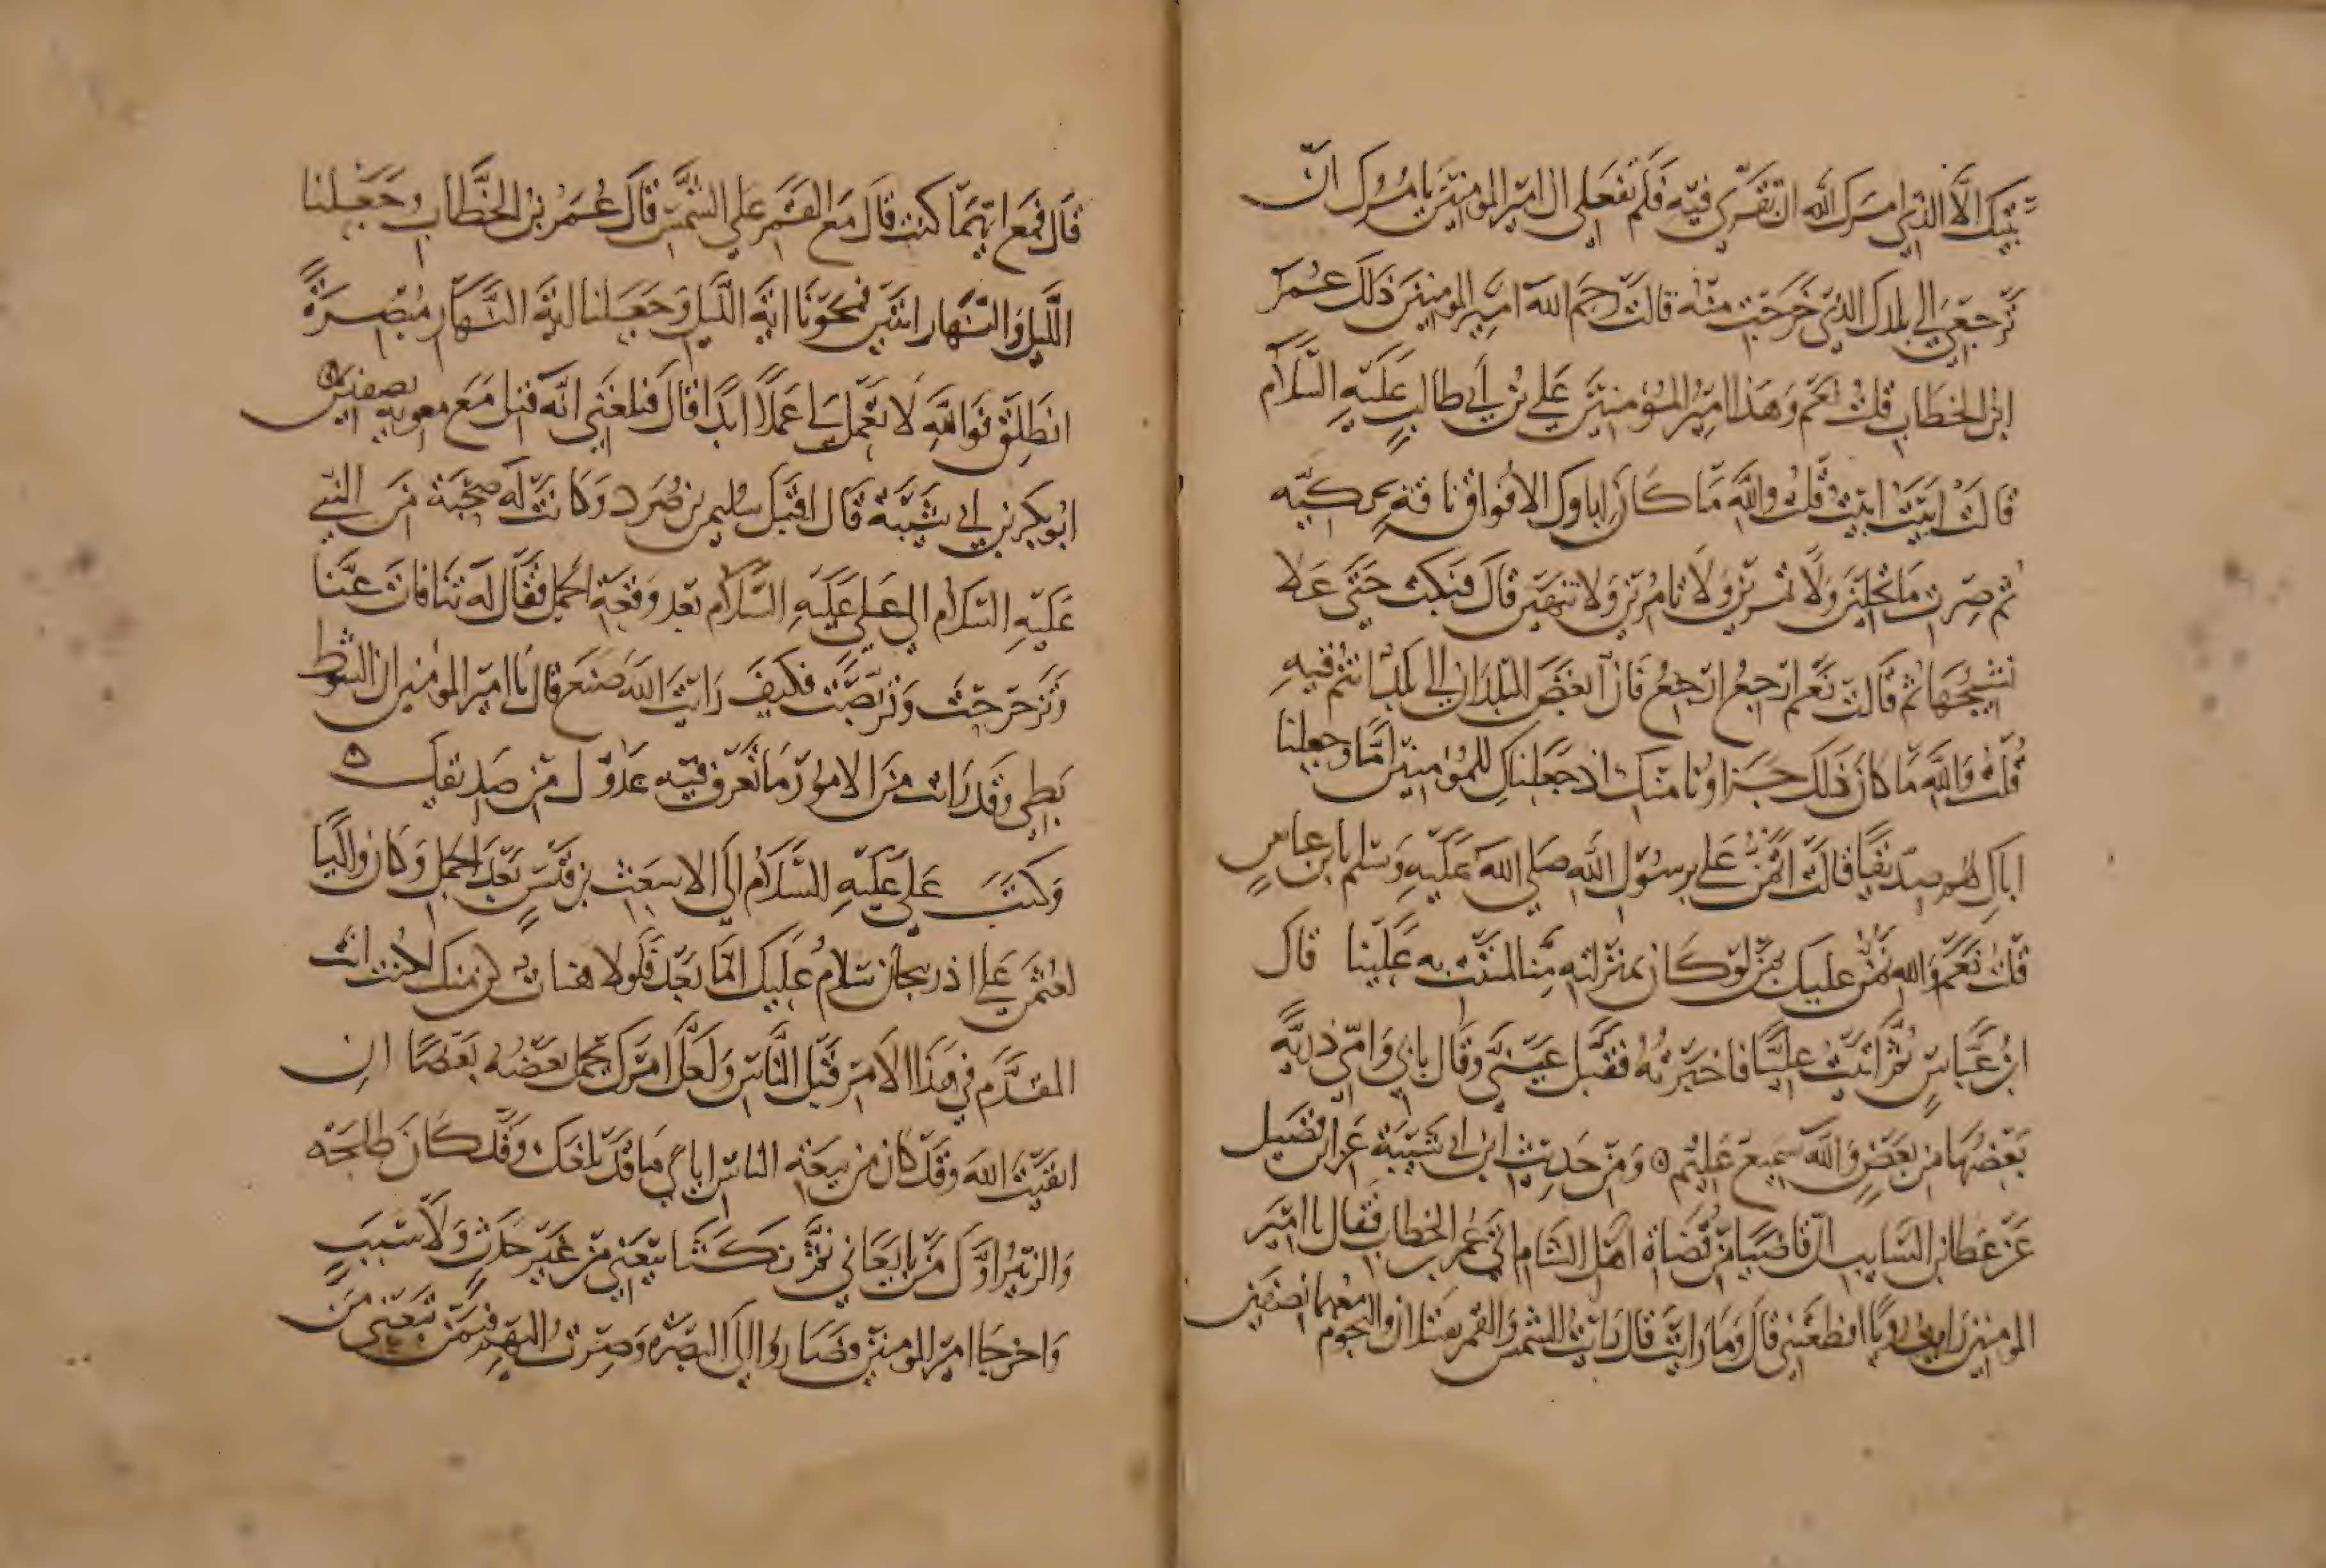 بيتك الا الذي امرك الله ان تقري فيه فلم تفعلي ان امير المومنين يامرك ان
ترجعي الى بلدك الذي خرجت منه قالت رحم الله امير المومنين ذلك عمر
ابن الخطاب قلت نعم وهذا امير المؤمنين علي بن ابي طالب عليه السلام
قالت ابيت ابيت قلت والله ما كان اباوك الا فواق ناقة بكيه
ثم صرت ما تحلين ولا تمرين ولا تامرين ولا تنهين قال فبكت حتى علا
نشيجها ثم قالت نعم ارجع ارجع فان ابغض البلدان الي بلد انتم فيه
قلت والله ما كان ذلك جزاونا منك اذ جعلناك للمؤمنين اما وجعلنا
اباك لهم صديقا قالت اتمن علي برسول الله صلى الله عليه وسلم يا بن عباس
قلت نعم والله نمن عليك بمن لو كان بمنزلته منا لمننت به علينا قال
ابن عباس ثم اتيت عليا فاخبرته فقبل عيني وقال بابي وامي ذرية
بعضها من بعض والله سميع عليم ۝ ومن حديث ابن ابي شيبة عن ابن فضيل
عن عطا بن السايب ان قاضيا من قضاة اهل الشام اتى عمر بن الخطاب فقال يا امير
المومنين رايت رويا افظعتني قال وما رايت قال رايت الشمس والقمر يقتتلان والنجوم معهما نصفين
قال فمع ايهما كنت قال مع القمر على الشمس قال عمر بن الخطاب وجعلنا
الليل والنهار ايتين فمحونا اية الليل وجعلنا اية النهار مبصرة
انطلق فوالله لا تعمل لي عملا ابدا قال فبلغني انه قتل مع معوية بصفين ۝
ابو بكر بن ابي شيبة قال اقبل سليمن بن صرد وكانت له صحبة من النبي
عليه السلام الى علي عليه السلام بعد وقعة الجمل فقال له تنانات عنا
وتزحزحت وتربصت فكيف رايت الله صنع قال يا امير المومنين ان الشوط
بطي وقد رايت من الامور ما تعرف فيه عدوك من صديقك ۝
وكتب علي عليه السلام الى الاشعث بن قيس بعد الجمل وكان واليا
لعثمن على اذربيجان سلام عليك اما بعد فلولا هنات كن منك لكنت انت
المقدم في هذا الامر قبل الناس ولعل امرك يحمل بعضه بعضا ان
اتقيت الله وقد كان من بيعة الناس اياي ما قد بلغك وقد كان طلحة
والزبير اول من بايعاني ثم نكثا بيعتي من غير حدث ولا سبب
واخرجا ام المومنين فصاروا الى البصرة وصرت اليهم فيمن تبعني من